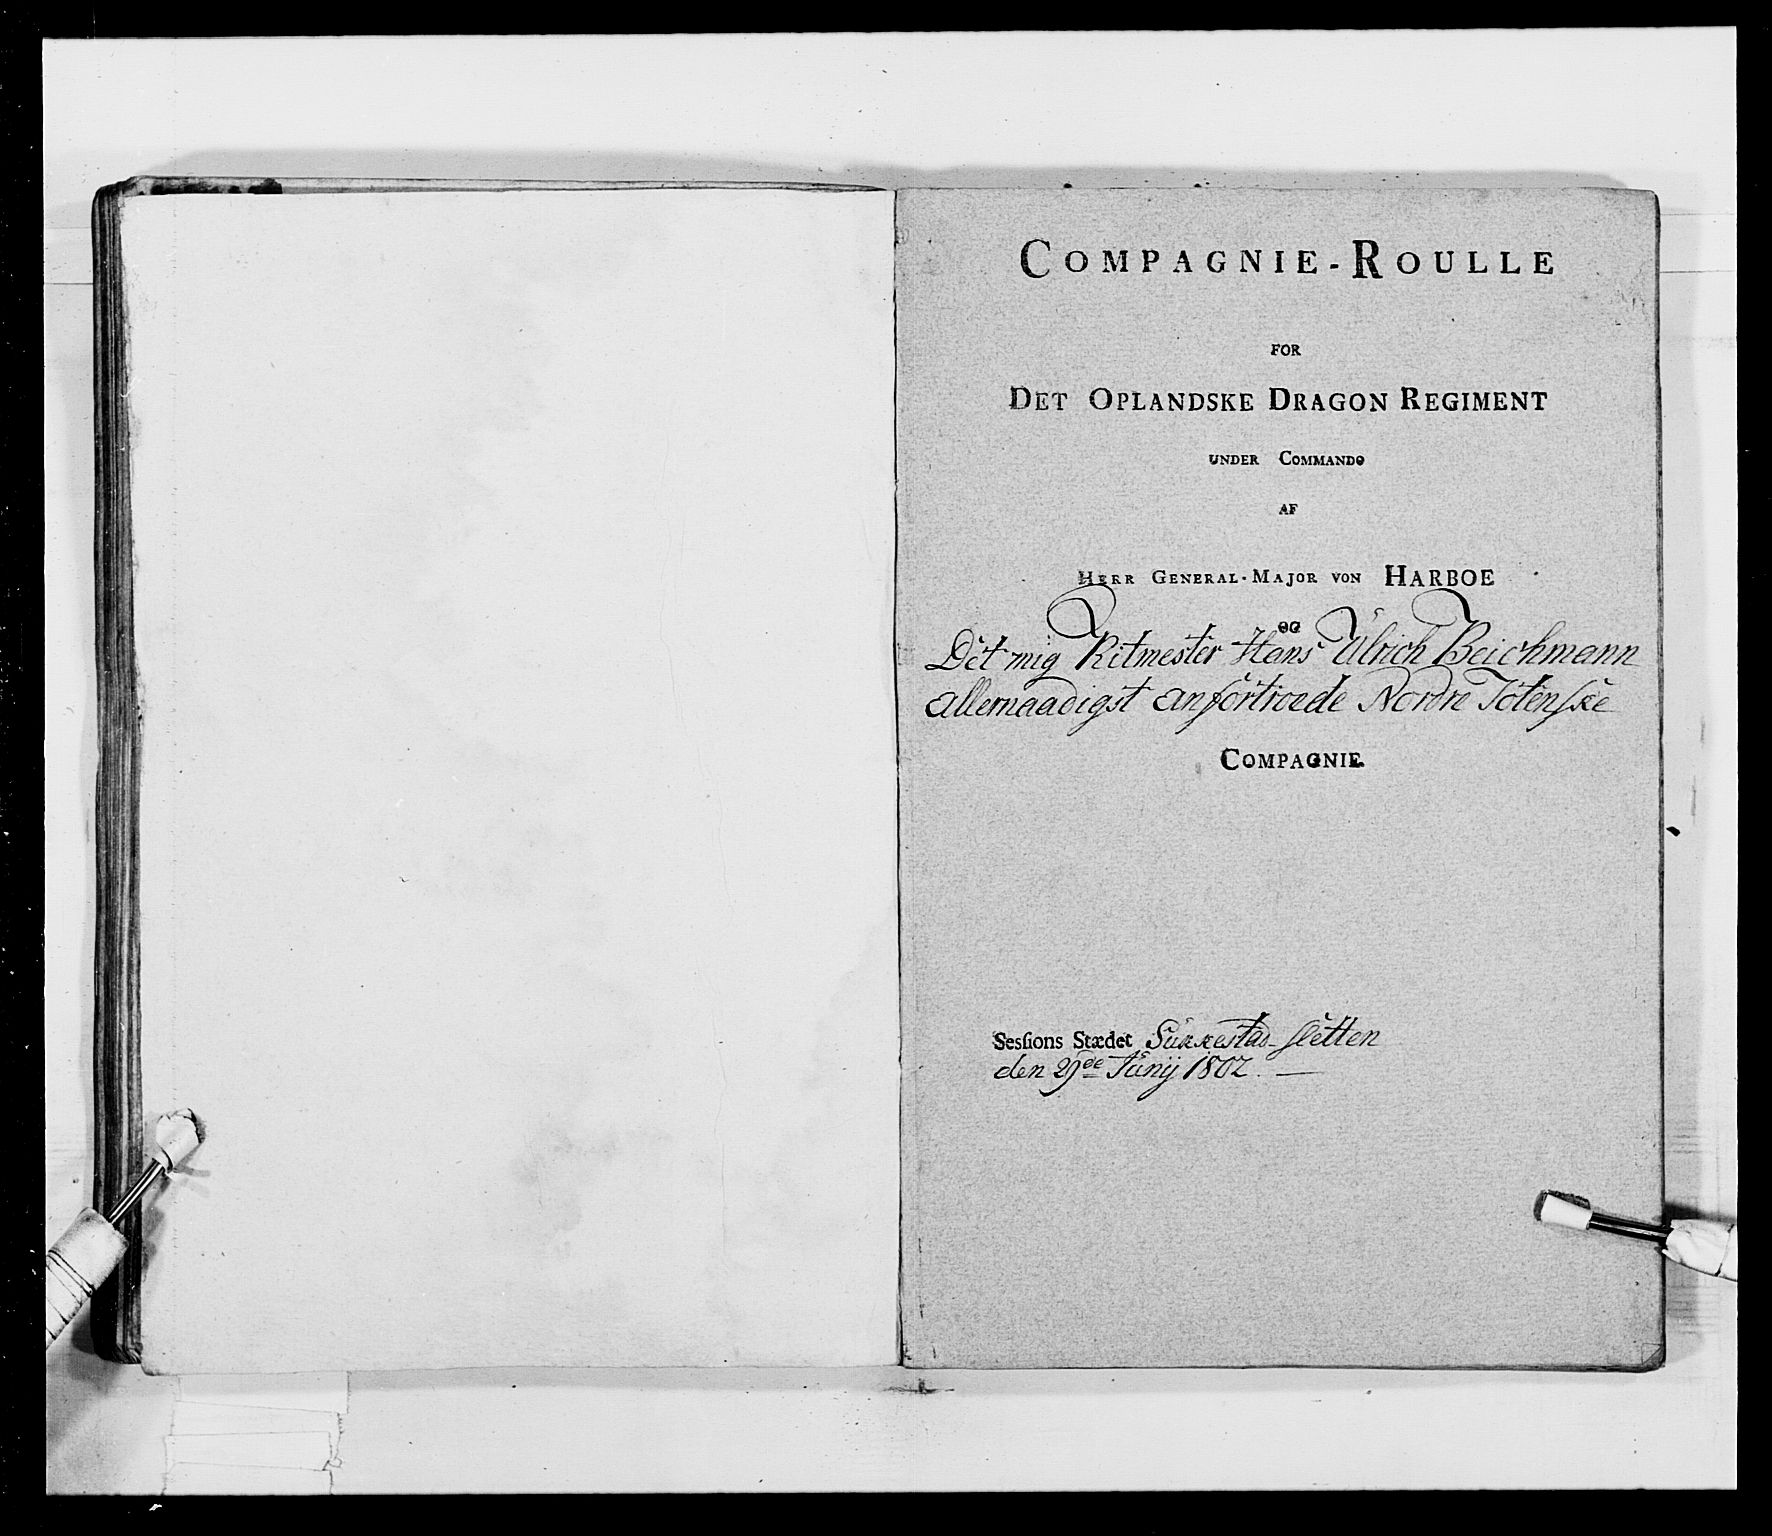 COMPAGNIE-ROULLE
FOR
DET OPLANDSKE DRAGON REGIMENT
UNDER COMMANDO
AF
HERR GENERAL-MAJOR VON HARBOE
OG
Det mig Ritmester Hans Ulrich Beichmann
allernaadigst anfortroede Nordre Totenske
COMPAGNIE.
Sesſions Stædet Sukkestad-sletten
den 29de Junij 1802.